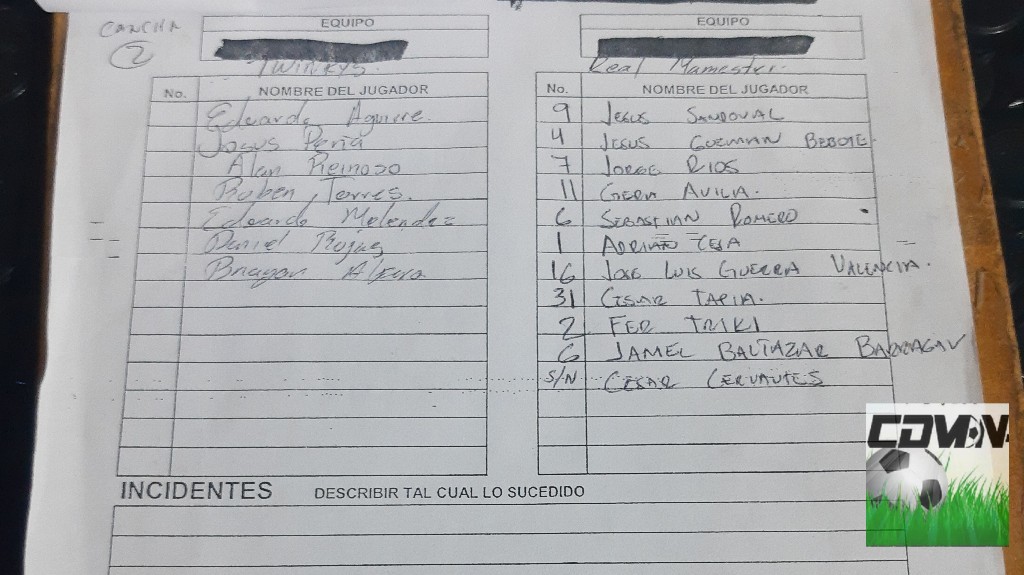 CANCHA
2
EQUIPO
Twinkys.
No. NOMBRE DEL JUGADOR
Eduardo Aguirre.
Josus Peña
Alan Reinoso
Ruben Torres.
Eduardo Melendez
Daniel Rojas
Brayan
EQUIPO
Real Mamester.
No. NOMBRE DEL JUGADOR
9 JESUS SANDOVAL
4 JESUS GUZMAN BEBOTE
7 JORGE RIOS
11 GERA AVILA.
6 SEBASTIAN ROMERO
1 ADRIAN
16 JOSE LUIS GUERRA VALENCIA.
31 CESAR TAPIA.
2 FER TRIKI
6 JAMEL BALTAZAR BARRAGAN
S/N CESAR CERVANTES
INCIDENTES DESCRIBIR TAL CUAL LO SUCEDIDO